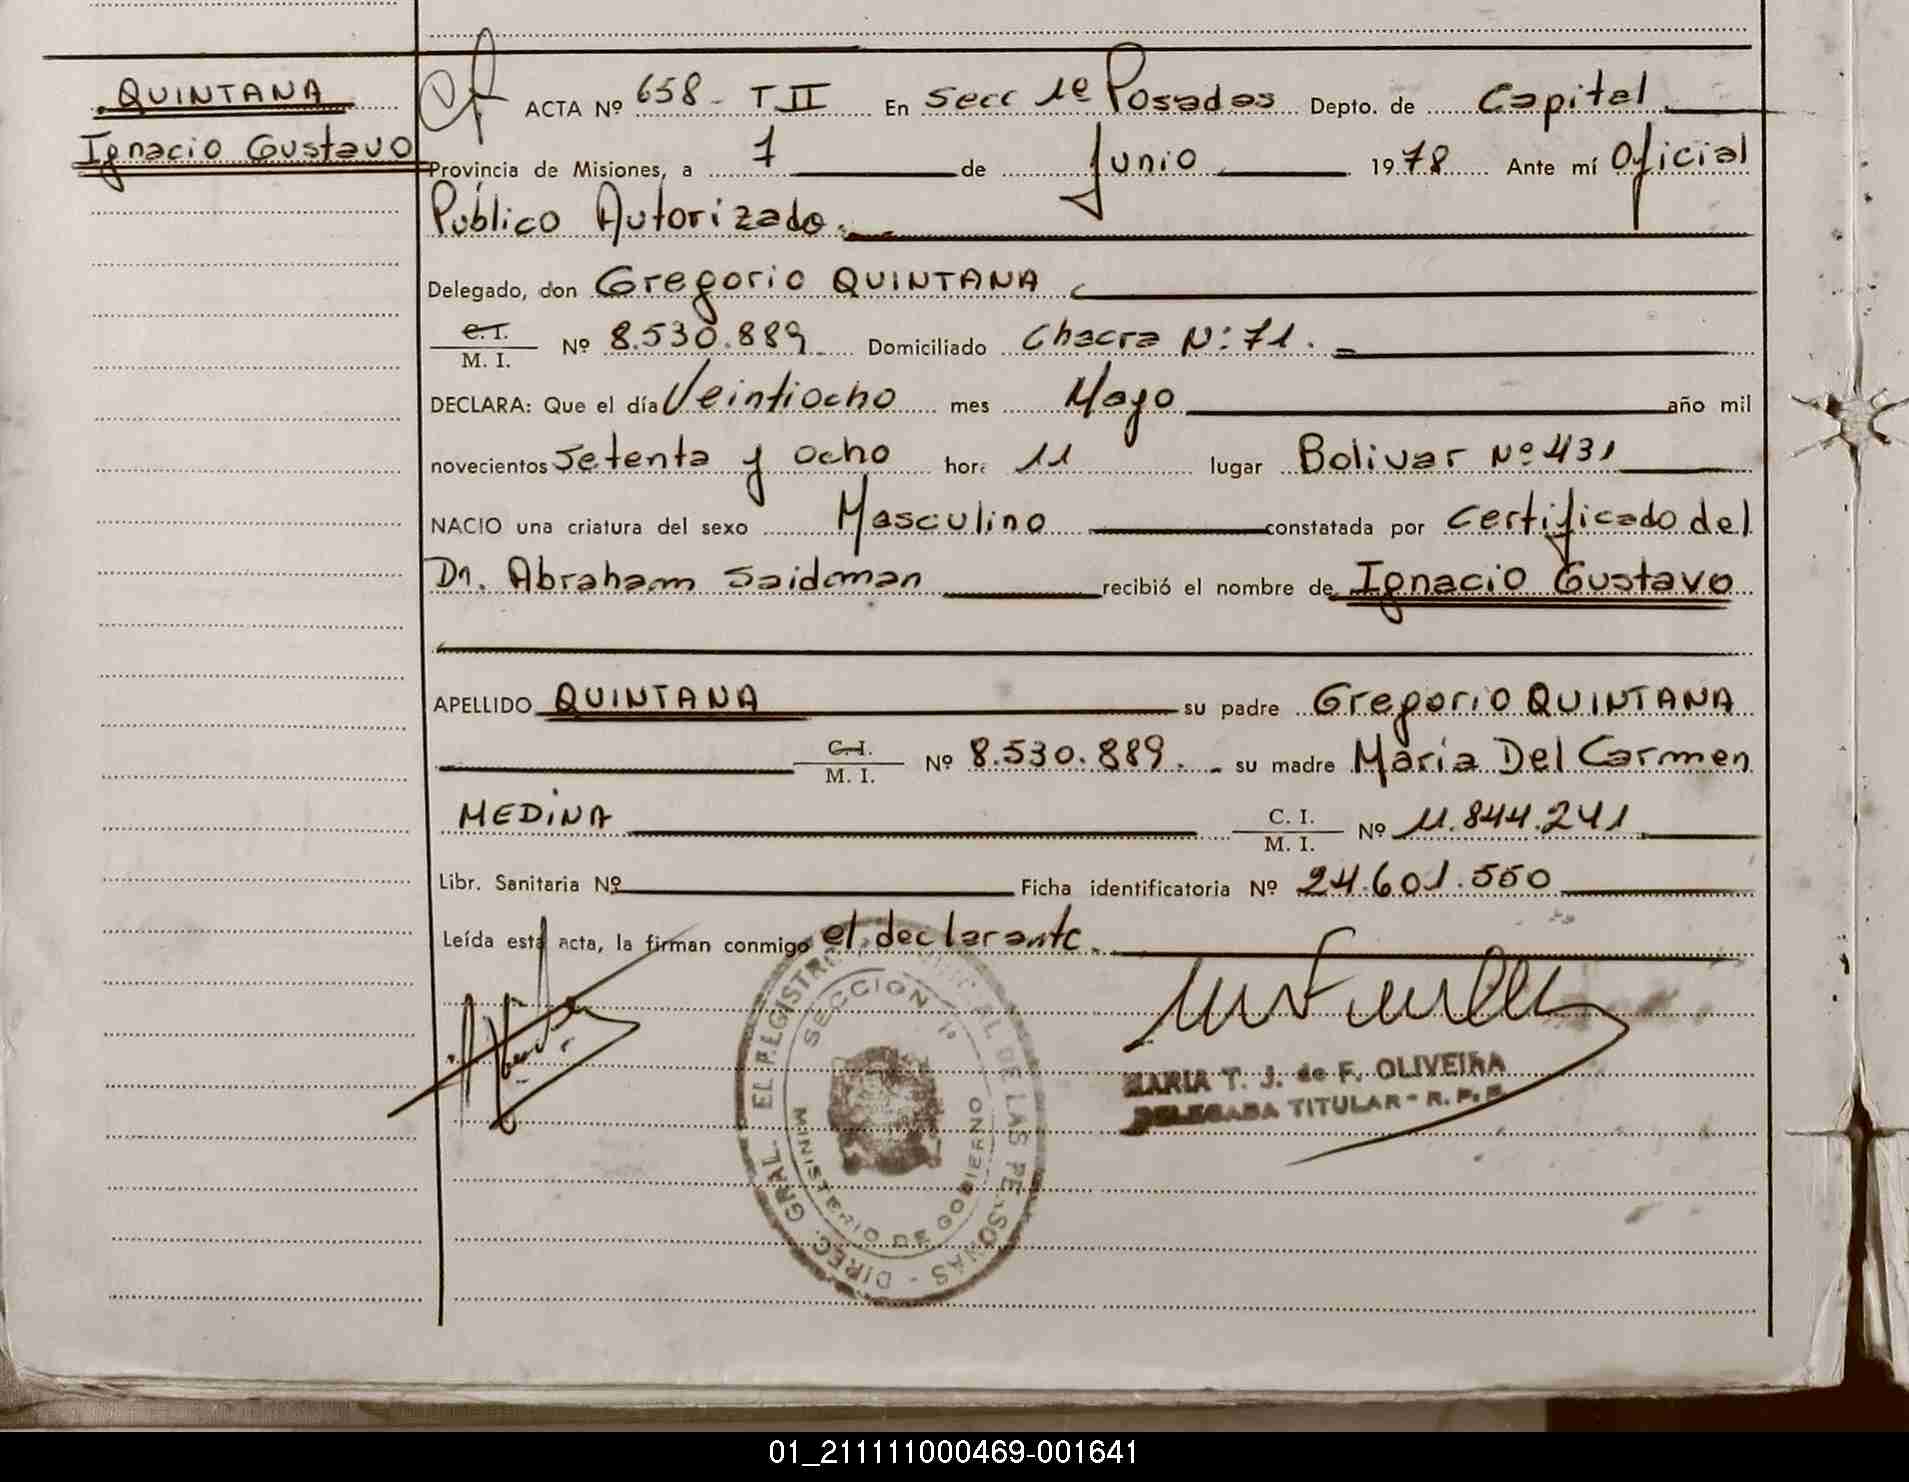 QUINTANA
Ignacio Gustavo
ACTA Nº 658 - T II En Secc 1º Posadas Depto. de Capital
Provincia de Misiones, a 7 de Junio 1978 Ante mí Oficial
Público Autorizado.
Delegado, don Gregorio QUINTANA
C. I.
M. I. Nº 8.530.889 Domiciliado Chacra N: 71.
DECLARA: Que el día Veintiocho mes Mayo año mil
novecientos setenta y ocho hora 11 lugar Bolivar Nº 431
NACIO una criatura del sexo Masculino constatada por Certificado del
Dr. Abraham Saidman recibió el nombre de Ignacio Gustavo
APELLIDO QUINTANA su padre Gregorio QUINTANA
C. I.
M. I. Nº 8.530.889. su madre María Del Carmen
MEDINA C. I.
M. I. Nº 11.844.241
Libr. Sanitaria Nº Ficha identificatoria Nº 24.601.550
Leída esta acta, la firman conmigo el declarante.
SECCION 1ª
MINISTERIO DE GOBIERNO
DIREC. GRAL. EL REGISTRO DE LAS PERSONAS
MARIA T. J. de F. OLIVEIRA
DELEGADA TITULAR - R. P. P.
01_211111000469-001641